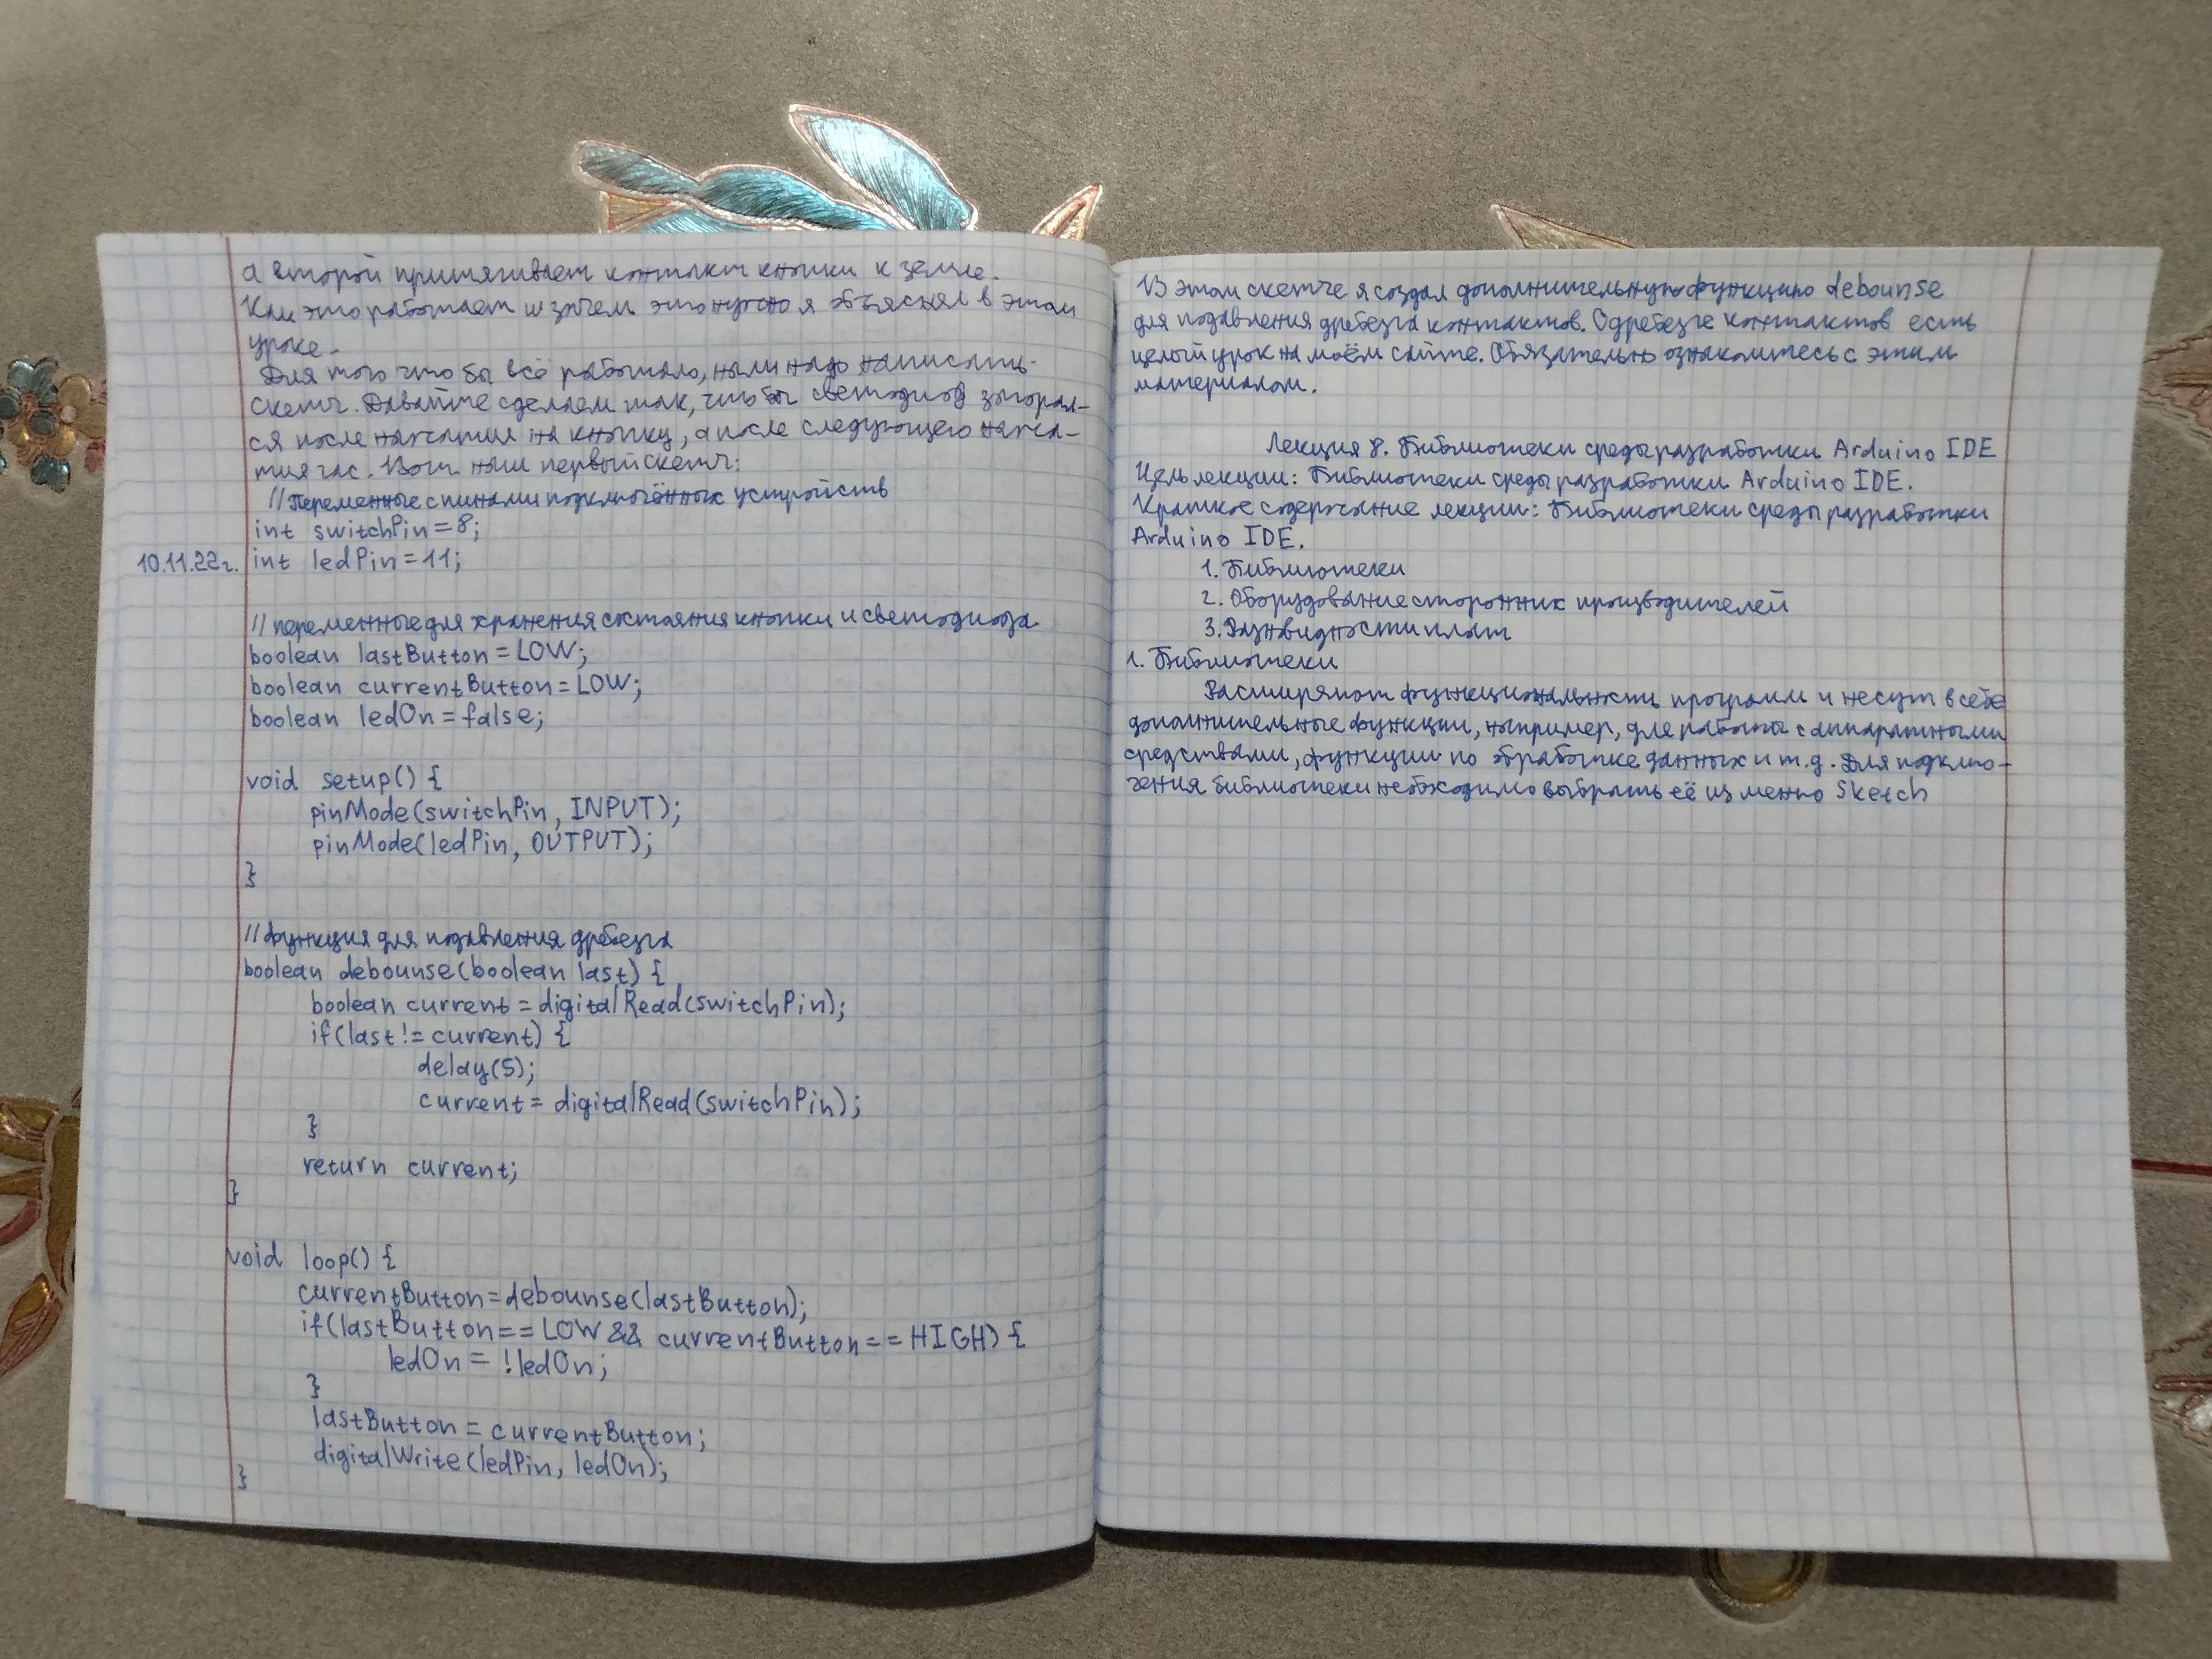 а второй притягивает контакт кнопки к земле.
Как это работает и зачем это нужно я объяснял в этом
уроке.
Для того что бы всё работало, нам надо написать
скетч. Давайте сделаем так, что бы светодиод загорал-
ся после нажатия на кнопку, а после следующего нажа-
тия гас. Вот наш первый скетч:
//Переменные с пинами подключённых устройств
int switchPin=8;
10.11.22г. int ledPin=11;
//переменные для хранения состояния кнопки и светодиода
boolean lastButton=LOW;
boolean currentButton=LOW;
boolean ledOn=false;
void setup() {
pinMode(switchPin, INPUT);
pinMode(ledPin, OUTPUT);
}
//функция для подавления дребезга
boolean debounse(boolean last) {
boolean current = digitalRead(switchPin);
if(last != current) {
delay(5);
current = digitalRead(switchPin);
}
return current;
}
void loop() {
currentButton=debounse(lastButton);
if(lastButton==LOW && currentButton==HIGH) {
ledOn = !ledOn;
}
lastButton = currentButton;
digitalWrite(ledPin, ledOn);
}
В этом скетче я создал дополнительную функцию debounse
для подавления дребезга контактов. О дребезге контактов есть
целый урок на моём сайте. Обязательно ознакомьтесь с этим
материалом.
Лекция 8. Библиотеки среды разработки Arduino IDE
Цель лекции: Библиотеки среды разработки Arduino IDE.
Краткое содержание лекции: Библиотеки среды разработки
Arduino IDE.
1. Библиотеки
2. Оборудование сторонних производителей
3. Разновидности плат
1. Библиотеки
Расширяют функциональность программ и несут в себе
дополнительные функции, например, для работы с аппаратными
средствами, функции по обработке данных и т.д. Для подклю-
чения библиотеки необходимо выбрать её из меню Sketch